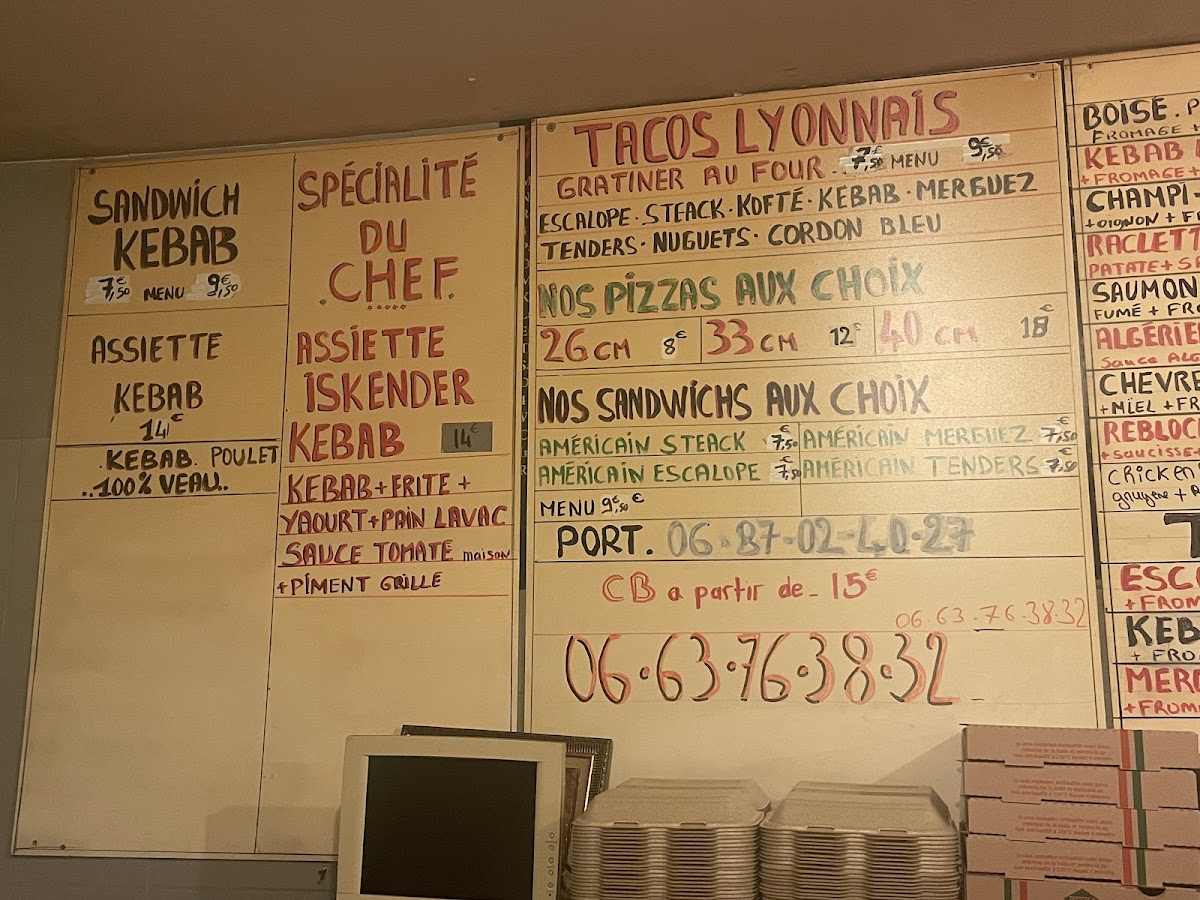 SANDWICH
KEBAB
7,50€ MENU 9,50€
ASSIETTE
KEBAB
14€
.KEBAB. POULET
..100% VEAU..
SPÉCIALITÉ
DU
.CHEF.
ASSIETTE
ISKENDER
KEBAB 14€
KEBAB+FRITE +
YAOURT+PAIN LAVAC
SAUCE TOMATE maison
+PIMENT GRILLE
TACOS LYONNAIS
GRATINER AU FOUR. 7,50€ MENU 9,50€
ESCALOPE·STEACK·KOFTÉ·KEBAB·MERGUEZ
TENDERS·NUGUETS·CORDON BLEU
NOS PIZZAS AUX CHOIX
26CM 8€ 33CM 12€ 40CM 18€
NOS SANDWICHS AUX CHOIX
AMÉRICAIN STEACK 7,50€ AMÉRICAIN MERGUEZ 7,50€
AMÉRICAIN ESCALOPE 7,50€ AMÉRICAIN TENDERS 7,50€
MENU 9,50€
PORT. 06-87-02-40-27
CB a partir de_ 15€
06.63.76.38.32
06.63.76.38.32
BOISÉ.
FROMAGE
KEBAB
+FROMAGE+
CHAMPI-
+OIGNON+
RACLETT
PATATE+
SAUMON
FUMÉ +
ALGÉRIE
SAUCE ALG
CHEVRE
+MIEL+
REBLOC
+SAUCISSE+
CHICKEN
gruyère+
ESC
+FROM
KEB
+ FRO
MERG
+FROM